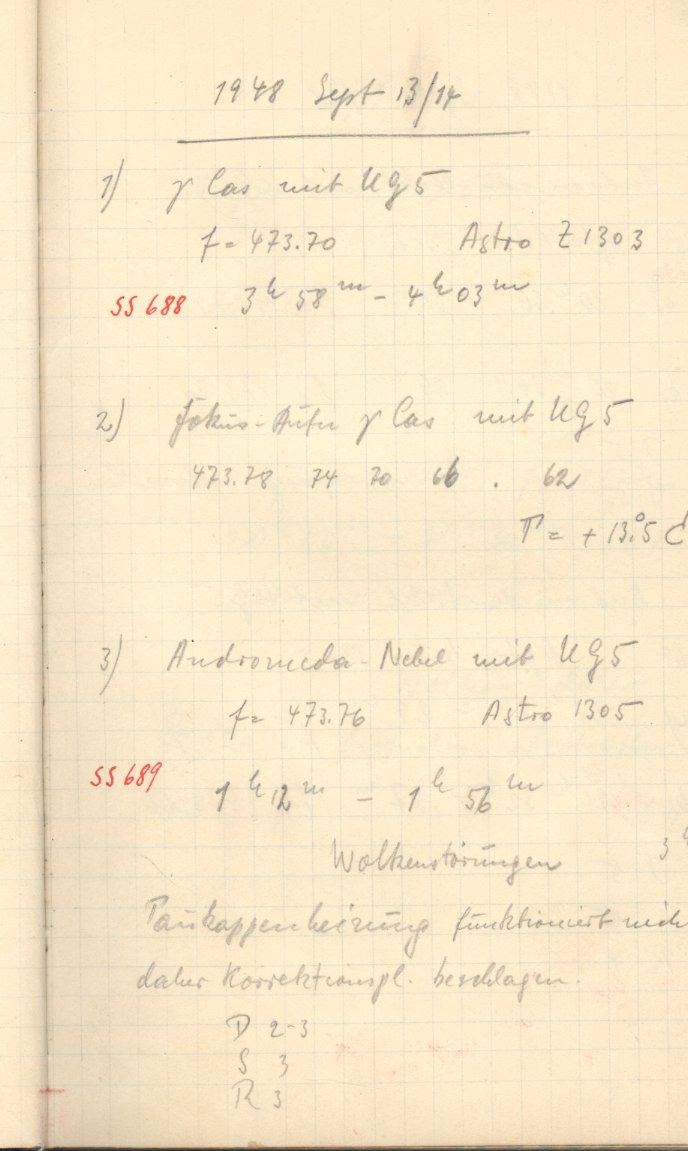 1948 Sept 13/14
1) γ Cas mit UG5
f = 473.70 Astro Z 1303
SS 688 3h 58m - 4h 03m
2) Fokus-Aufn γ Cas mit UG5
473.78 74 70 66 . 62
T = + 13.°5 C
3) Andromeda-Nebel mit UG5
f = 473.76 Astro 1305
SS 689 1h 12m - 1h 56m
Wolkenstörungen 3
Taukappenheizung funktioniert nich
daher Korrektionspl. beschlagen.
D 2-3
S 3
R 3